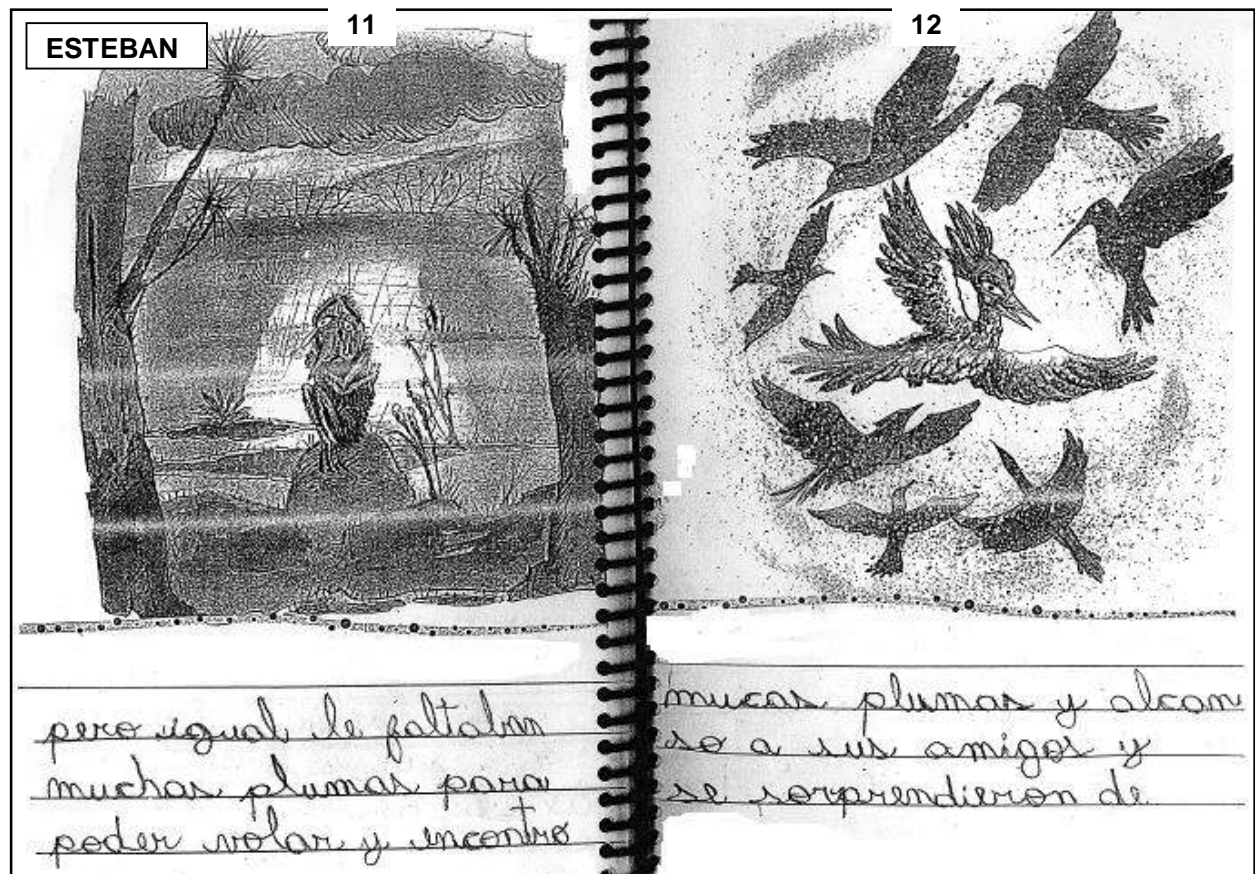 ESTEBAN
11
pero igual le faltaban
muchas plumas para
poder volar y encontro
12
mucas plumas y alcan
so a sus amigos y
se sorprendieron de